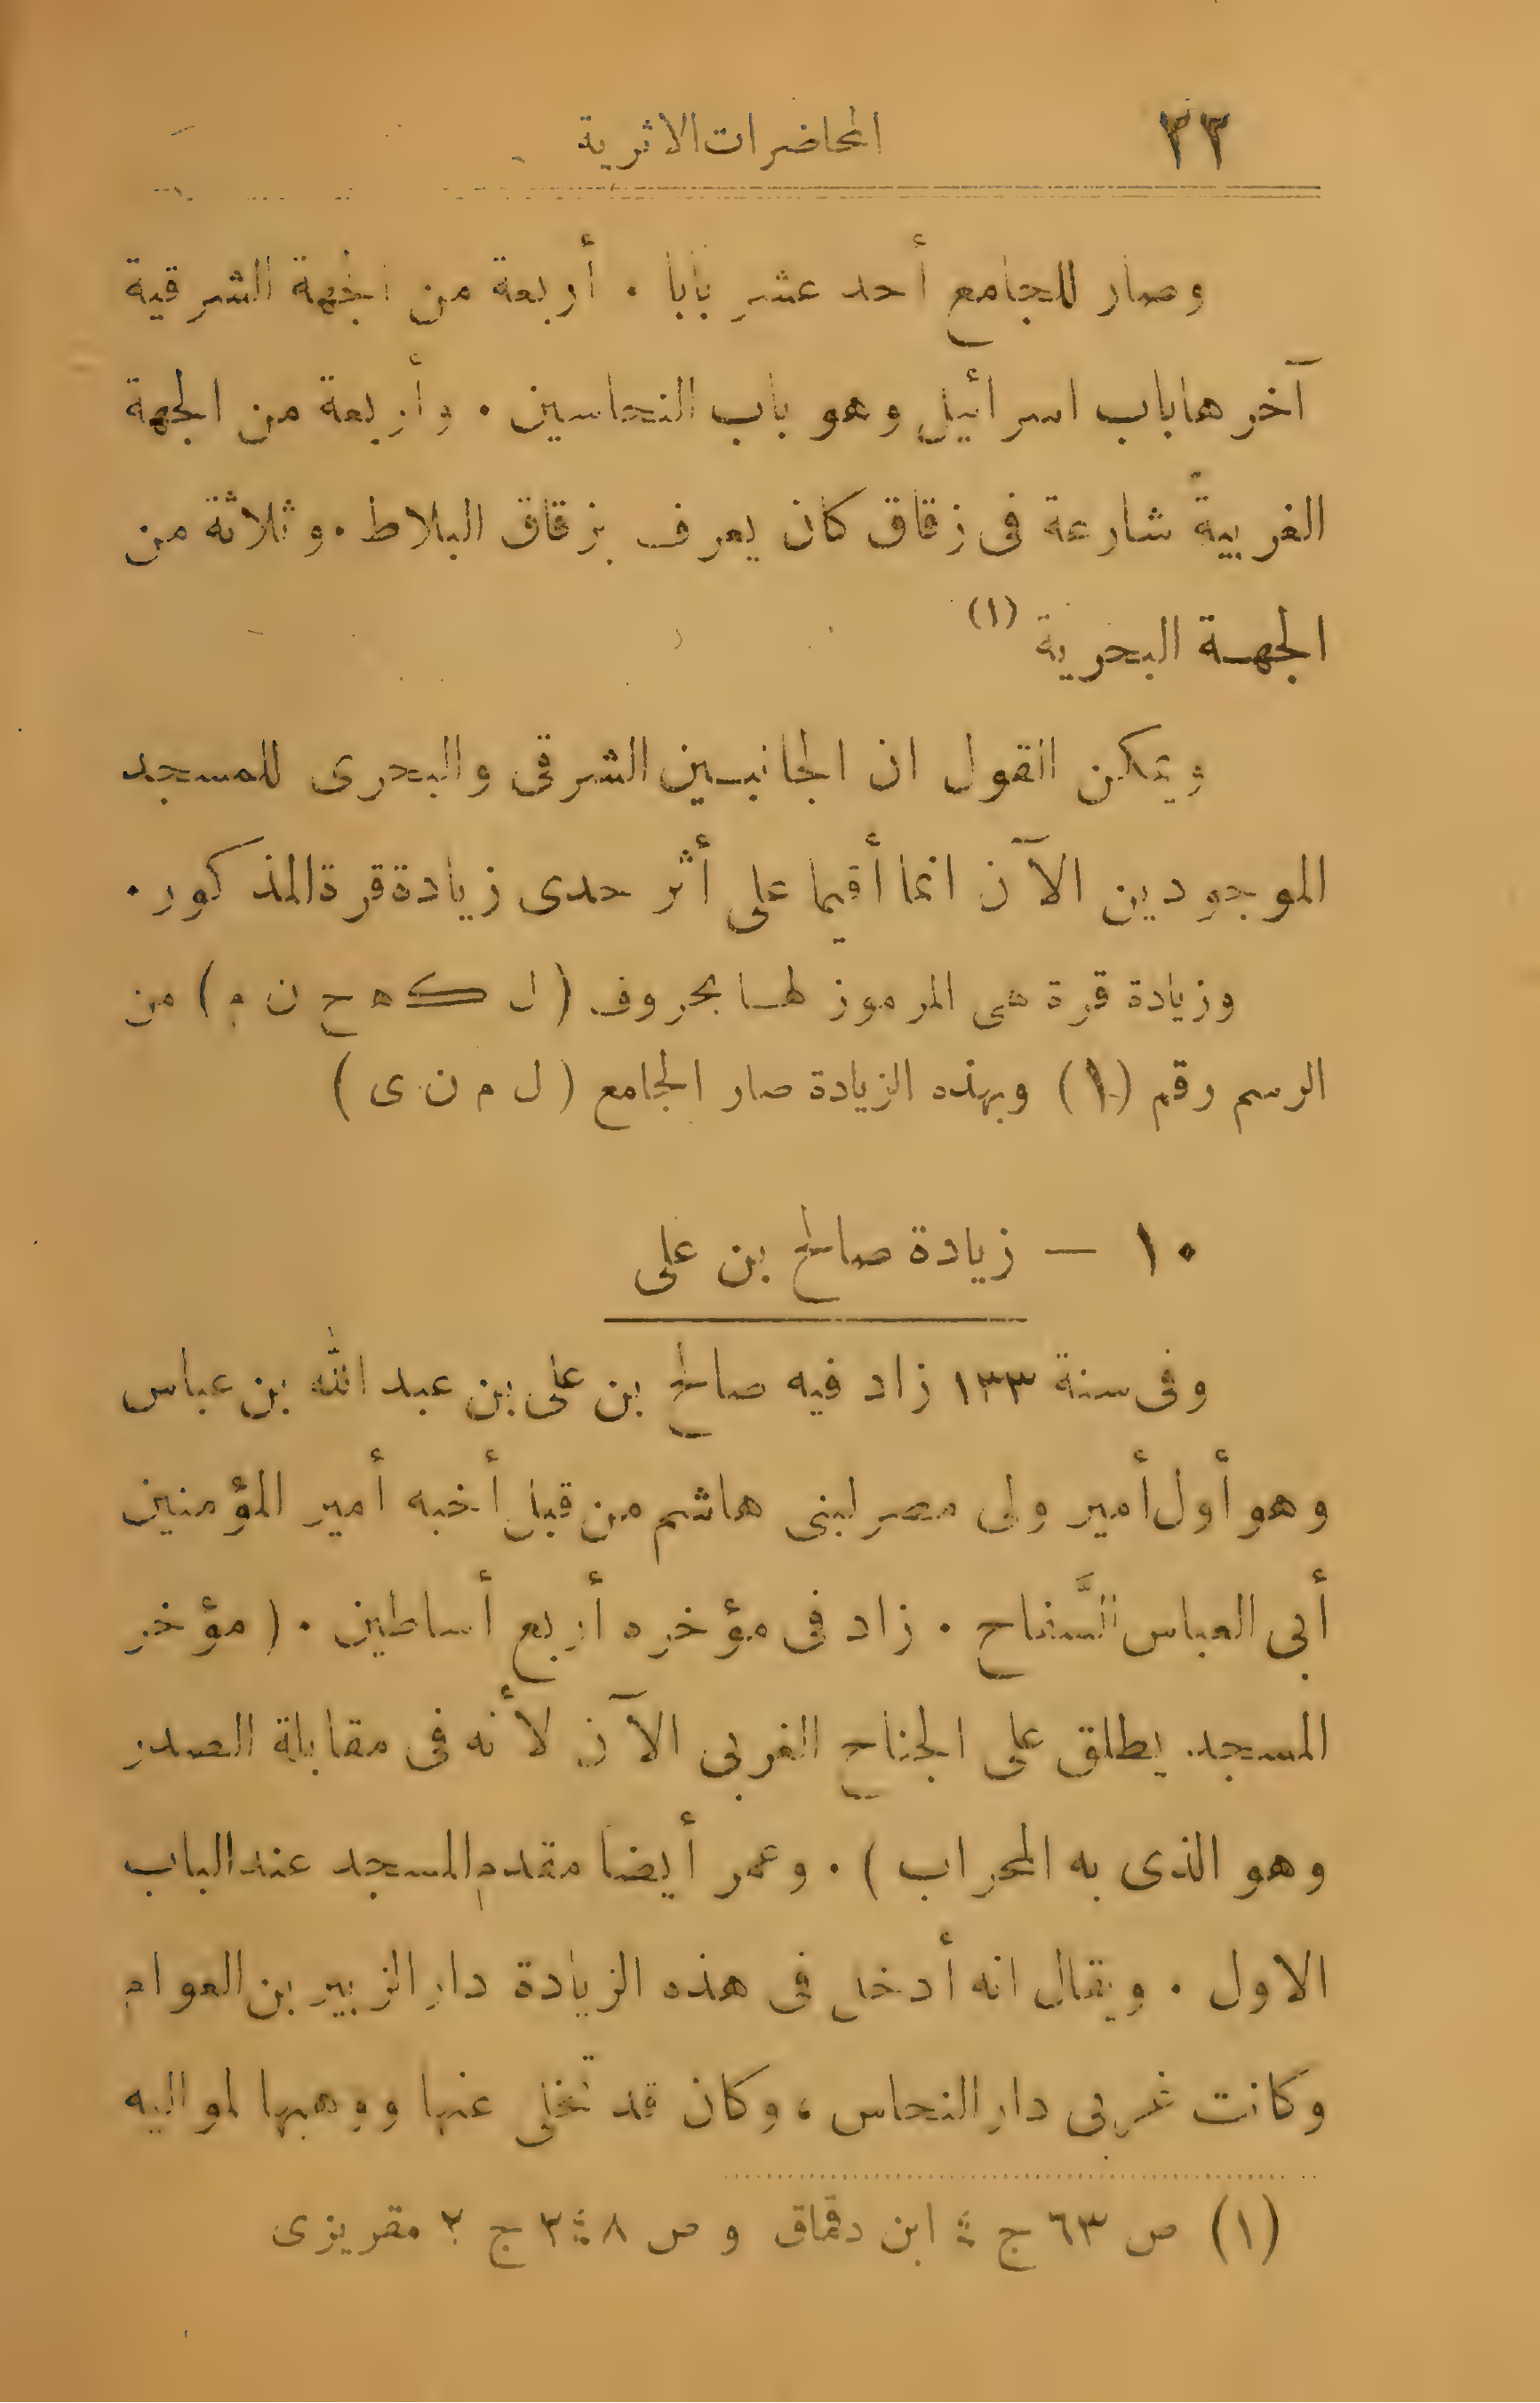 ٣٣ المحاضرات الاثرية
وصار للجامع أحد عشر بابا . أربعة من الجهة الشرقية
آخرها باب اسرائيل وهو باب النحاسين . وأربعة من الجهة
الغربية شارعة فى زقاق كان يعرف بزقاق البلاط . وثلاثة من
الجهة البحرية (١)
ويمكن القول ان الجانبين الشرقى والبحرى للمسجد
الموجودين الآن انما أقيما على أثر حدى زيادة قرة المذكور .
وزيادة قرة هى المرموز لها بحروف ( ل ك ه ح ن م ) من
الرسم رقم (١) وبهذه الزيادة صار الجامع ( ل م ن ى )
١٠ — زيادة صالح بن على
وفى سنة ١٣٣ زاد فيه صالح بن على بن عبد الله بن عباس
وهو أول أمير ولى مصر لبنى هاشم من قبل أخيه أمير المؤمنين
أبى العباس السَّفاح . زاد فى مؤخره أربع أساطين . ( مؤخر
المسجد يطلق على الجناح الغربى الآن لأنه فى مقابلة الصدر
وهو الذى به المحراب ) . وعمر أيضا مقدم المسجد عند الباب
الاول . ويقال انه أدخل فى هذه الزيادة دار الزبير بن العوام
وكانت غربى دار النحاس ، وكان قد تخلى عنها ووهبها لمواليه
(١) ص ٦٣ ج ٤ ابن دقماق و ص ٢٤٨ ج ٢ مقريزى